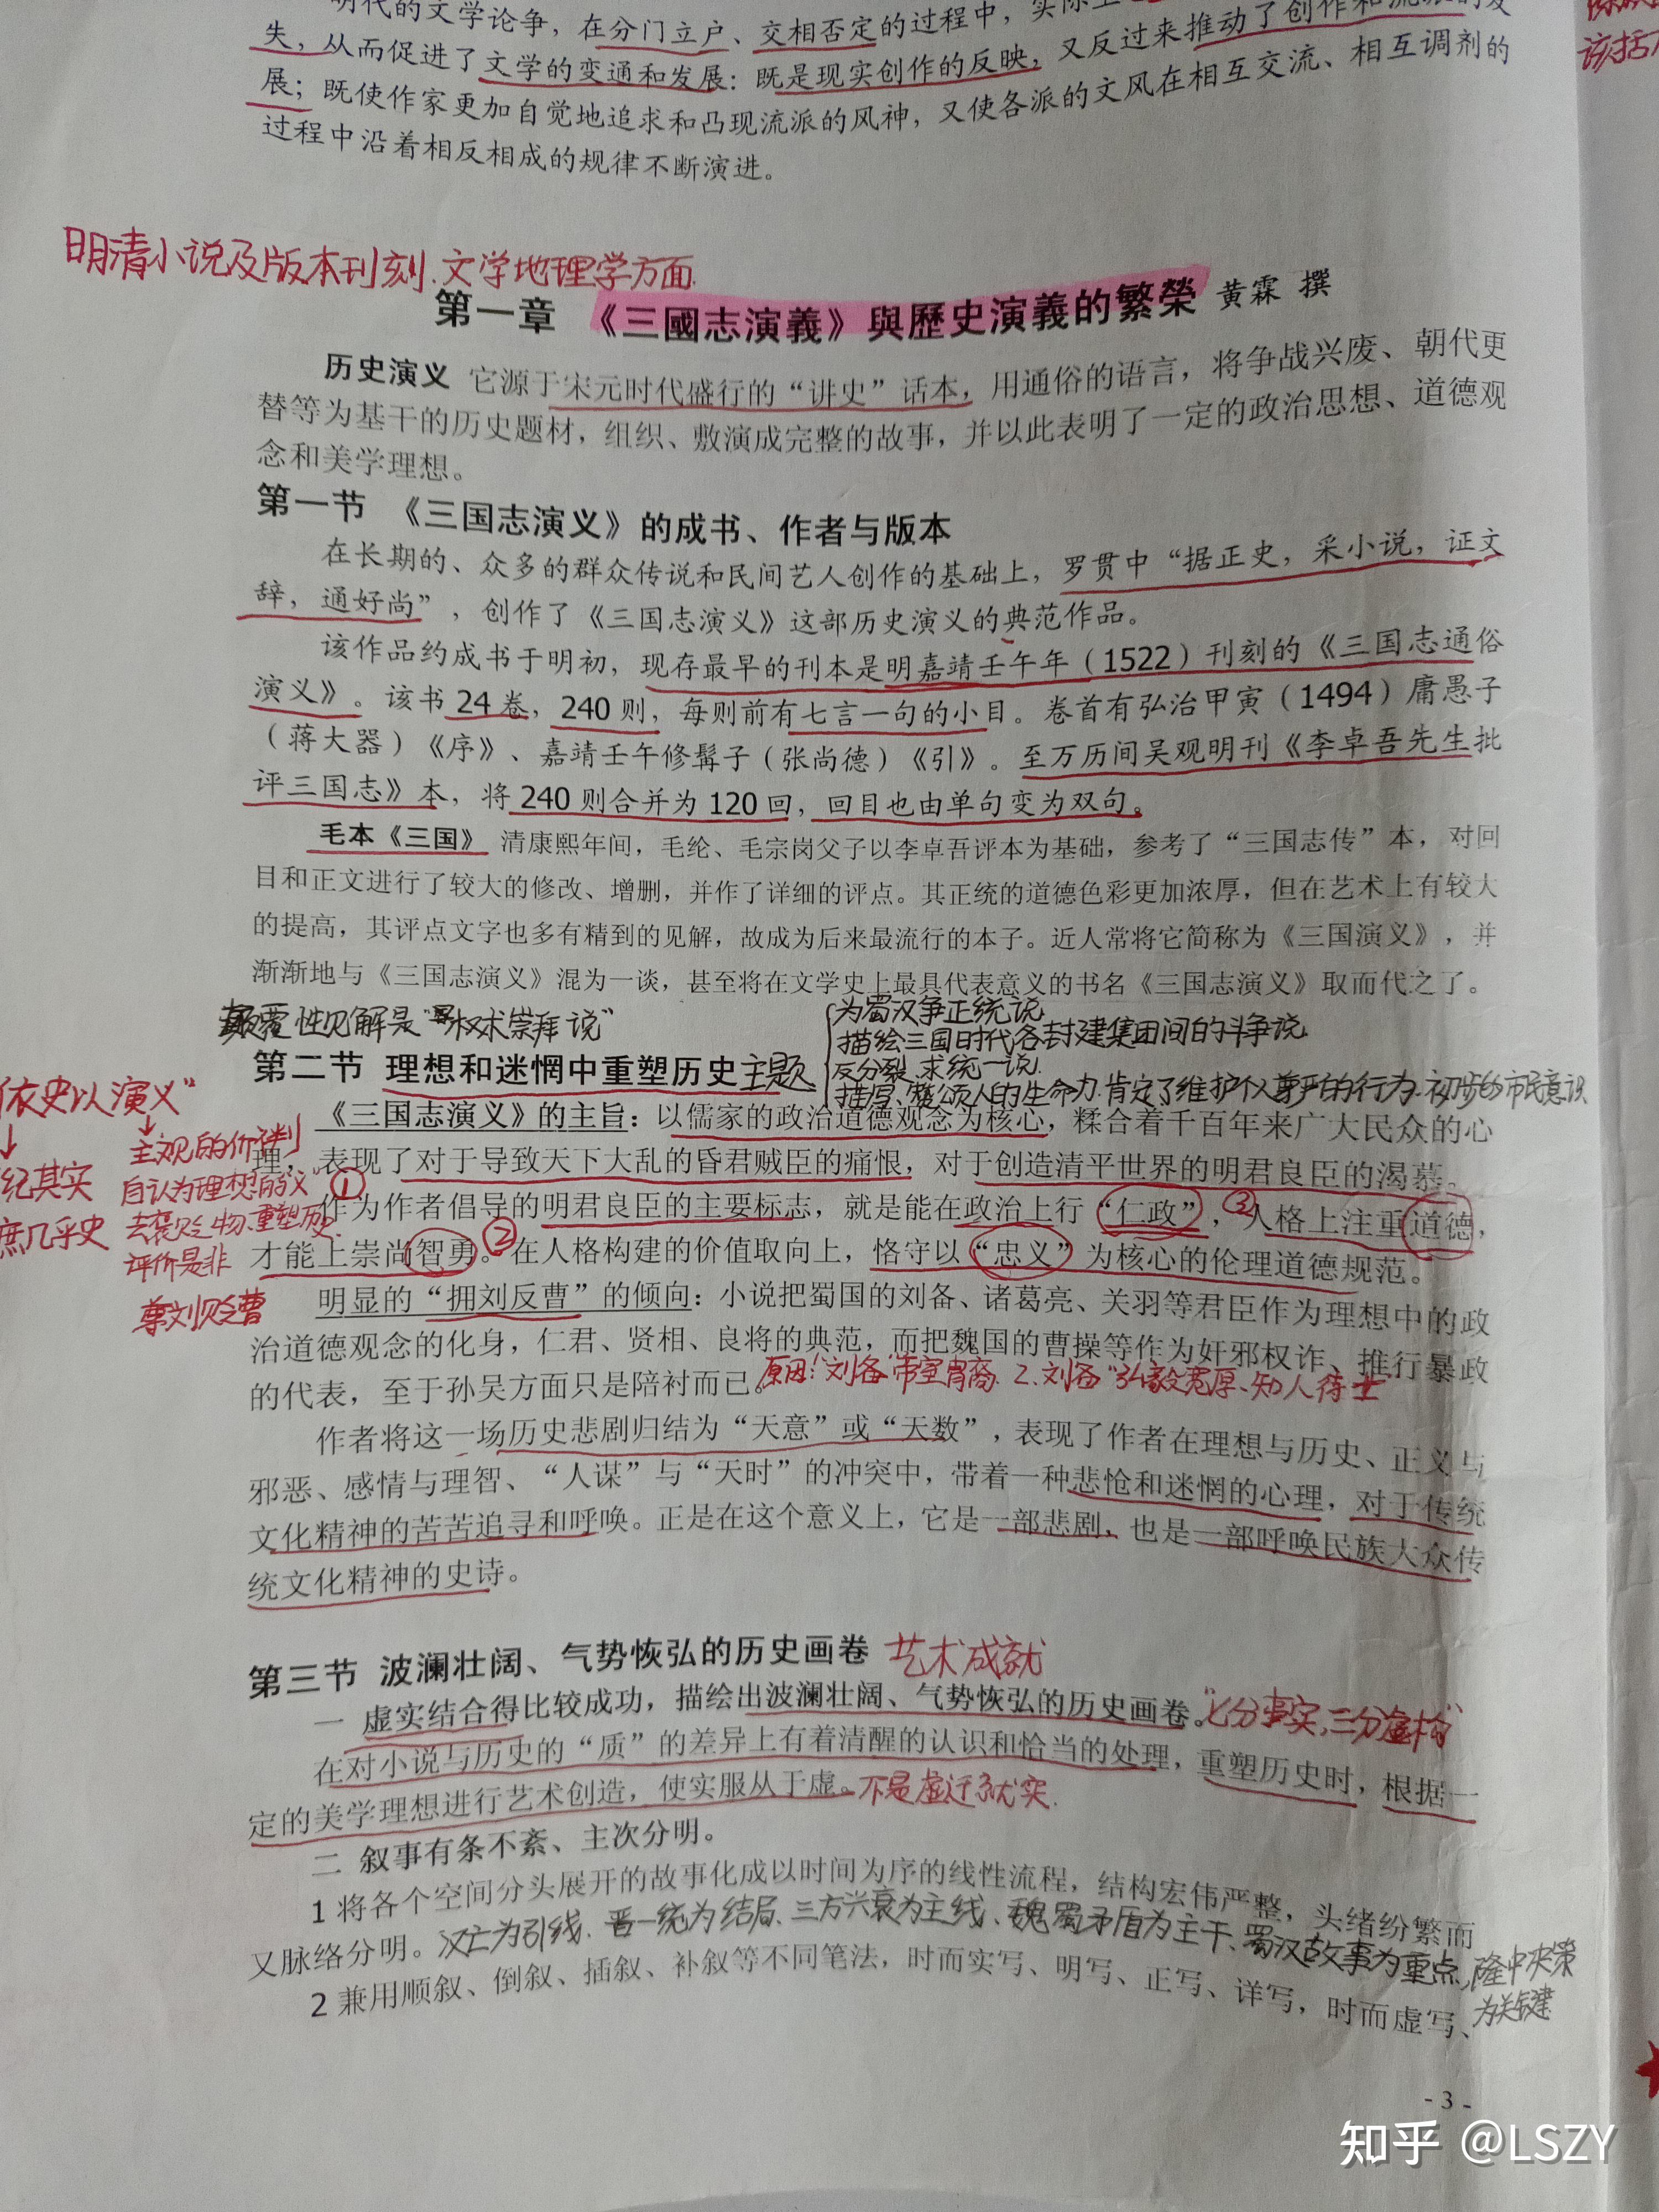 明代的文学论争，在分门立户、交相否定的过程中，实际上
失，从而促进了文学的变通和发展：既是现实创作的反映，又反过来推动了创作和流派的发
展；既使作家更加自觉地追求和凸现流派的风神，又使各派的文风在相互交流、相互调剂的
过程中沿着相反相成的规律不断演进。
明清小说及版本刊刻.文学地理学方面.
第一章 《三國志演義》與歷史演義的繁榮 黄霖 撰
历史演义 它源于宋元时代盛行的“讲史”话本，用通俗的语言，将争战兴废、朝代更
替等为基干的历史题材，组织、敷演成完整的故事，并以此表明了一定的政治思想、道德观
念和美学理想。
第一节 《三国志演义》的成书、作者与版本
在长期的、众多的群众传说和民间艺人创作的基础上，罗贯中“据正史，采小说，证文
辞，通好尚”，创作了《三国志演义》这部历史演义的典范作品。
该作品约成书于明初，现存最早的刊本是明嘉靖壬午年（1522）刊刻的《三国志通俗
演义》。该书 24 卷，240 则，每则前有七言一句的小目。卷首有弘治甲寅（1494）庸愚子
（蒋大器）《序》、嘉靖壬午修髯子（张尚德）《引》。至万历间吴观明刊《李卓吾先生批
评三国志》本，将 240 则合并为 120 回，回目也由单句变为双句。
毛本《三国》 清康熙年间，毛纶、毛宗岗父子以李卓吾评本为基础，参考了“三国志传”本，对回
目和正文进行了较大的修改、增删，并作了详细的评点。其正统的道德色彩更加浓厚，但在艺术上有较大
的提高，其评点文字也多有精到的见解，故成为后来最流行的本子。近人常将它简称为《三国演义》，并
渐渐地与《三国志演义》混为一谈，甚至将在文学史上最具代表意义的书名《三国志演义》取而代之了。
颠覆性见解是“权术崇拜说”
为蜀汉争正统说
描绘三国时代各封建集团间的斗争说
反分裂、求统一说.
推崇、赞颂人的生命力.肯定了维护个人尊严的行为.初步的市民意识
第二节 理想和迷惘中重塑历史主题
依史以演义”
主观的价值判
自认为理想的“义”
去褒贬人物、重塑历史.
评价是非
尊刘贬曹
纪其实
庶几乎史
《三国志演义》的主旨：以儒家的政治道德观念为核心，糅合着千百年来广大民众的心
理，表现了对于导致天下大乱的昏君贼臣的痛恨，对于创造清平世界的明君良臣的渴慕。
①作为作者倡导的明君良臣的主要标志，就是能在政治上行“仁政”，③人格上注重道德，
才能上崇尚智勇。②在人格构建的价值取向上，恪守以“忠义”为核心的伦理道德规范。
明显的“拥刘反曹”的倾向：小说把蜀国的刘备、诸葛亮、关羽等君臣作为理想中的政
治道德观念的化身，仁君、贤相、良将的典范，而把魏国的曹操等作为奸邪权诈、推行暴政
的代表，至于孙吴方面只是陪衬而已。原因：1.刘备“帝室胄裔. 2.刘备“弘毅宽厚、知人待士”
作者将这一场历史悲剧归结为“天意”或“天数”，表现了作者在理想与历史、正义与
邪恶、感情与理智、“人谋”与“天时”的冲突中，带着一种悲怆和迷惘的心理，对于传统
文化精神的苦苦追寻和呼唤。正是在这个意义上，它是一部悲剧，也是一部呼唤民族大众传
统文化精神的史诗。
第三节 波澜壮阔、气势恢弘的历史画卷 艺术成就
一 虚实结合得比较成功，描绘出波澜壮阔、气势恢弘的历史画卷。“七分事实，三分虚构”
在对小说与历史的“质”的差异上有着清醒的认识和恰当的处理，重塑历史时，根据一
定的美学理想进行艺术创造，使实服从于虚。不是虚迁就实.
二 叙事有条不紊、主次分明。
1 将各个空间分头展开的故事化成以时间为序的线性流程，结构宏伟严整，头绪纷繁而
又脉络分明。汉亡为引线.晋一统为结局.三方兴衰为主线、魏蜀矛盾为主干、蜀汉故事为重点，隆中决策
为关键
2 兼用顺叙、倒叙、插叙、补叙等不同笔法，时而实写、明写、正写、详写，时而虚写、
- 3 -
知乎 @LSZY